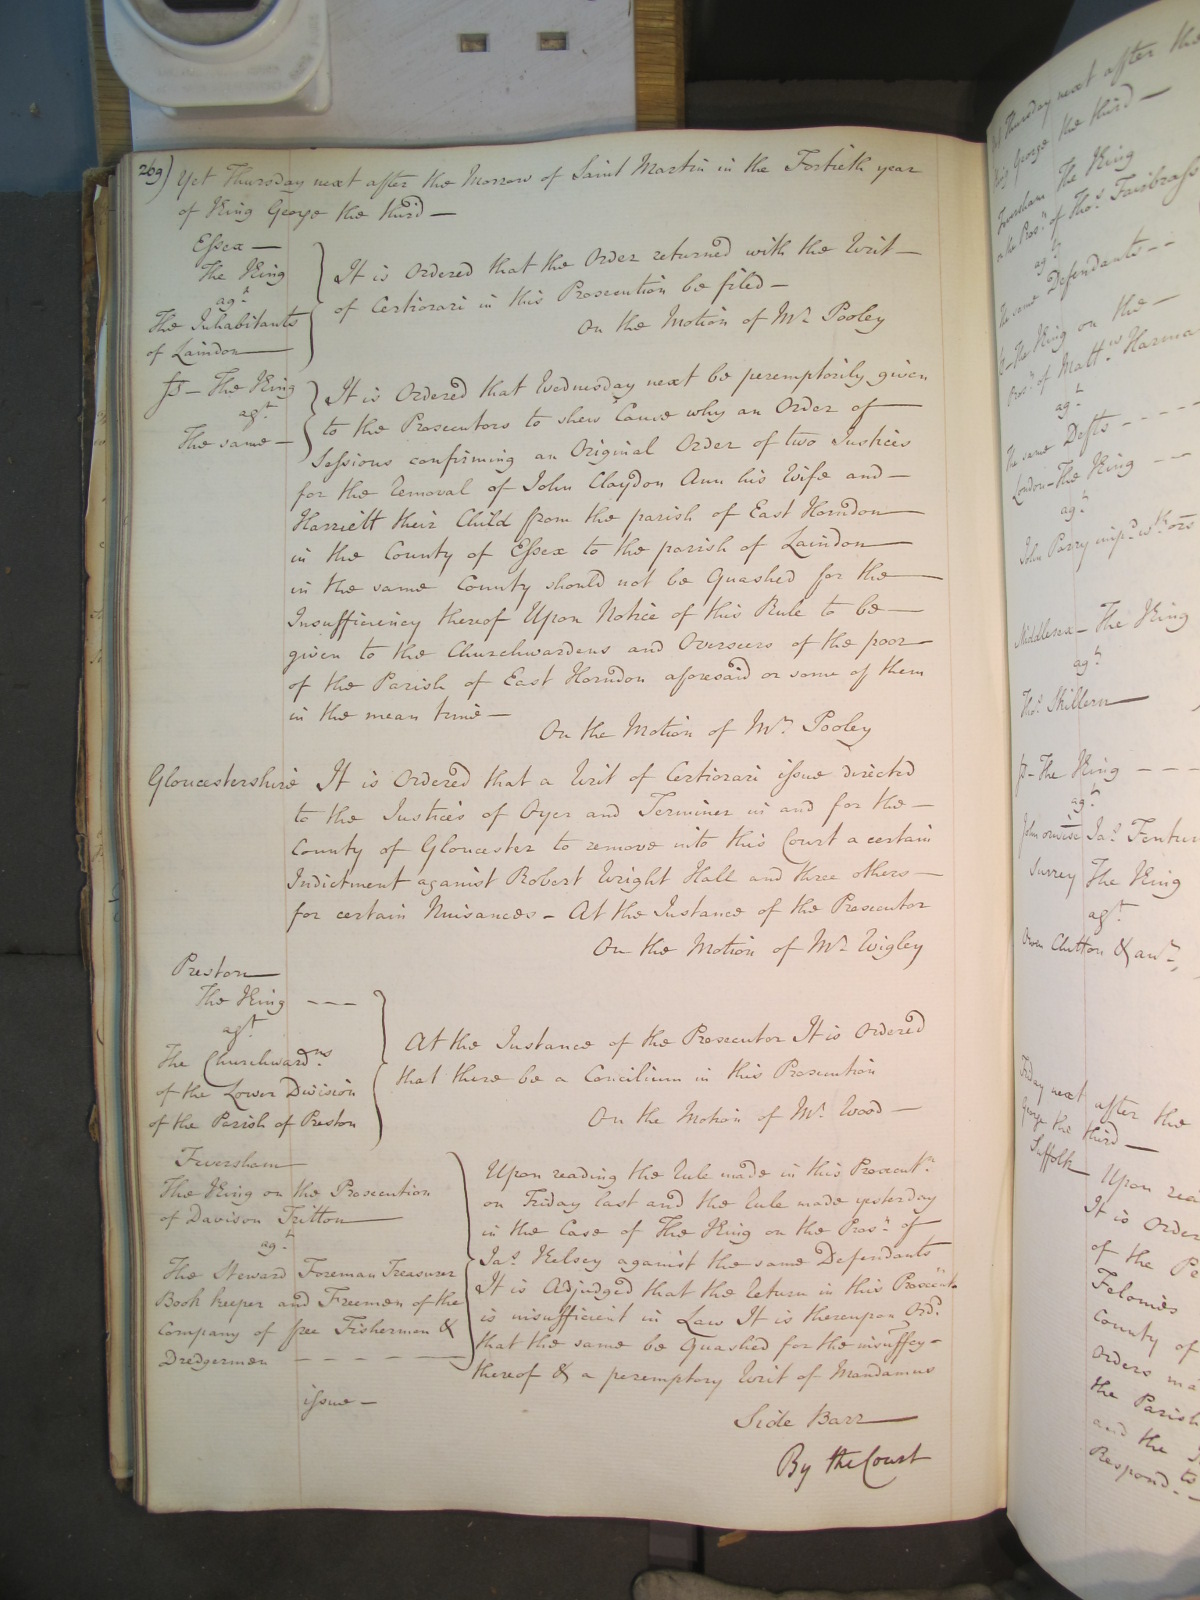 269) Yet Thursday next after the Morrow of Saint Martin in the Fortieth year
of King George the third —
Essex —
The King
agt.
The Inhabitants
of Laindon —
It is Ordered that the Order returned with the Writ —
of Certiorari in this Prosecution be filed —
On the Motion of Mr. Pooley
Ss — The King
agt.
The same —
It is Ordered that Wednesday next be peremptorily given
to the Prosecutors to shew Cause why an Order of
Sessions confirming an Original Order of two Justices
for the Removal of John Claydon Ann his Wife and —
Harriett their Child from the parish of East Horndon —
in the County of Essex to the parish of Laindon —
in the same County should not be Quashed for the —
Insufficiency thereof Upon Notice of this Rule to be —
given to the Churchwardens and Overseers of the poor —
of the Parish of East Horndon aforesaid or some of them
in the mean time —
On the Motion of Mr. Pooley
Gloucestershire It is Ordered that a Writ of Certiorari issue directed
to the Justices of Oyer and Terminer in and for the —
County of Gloucester to remove into this Court a certain
Indictment against Robert Wright Hall and three others —
for certain Nuisances — At the Instance of the Prosecutor
On the Motion of Mr. Wigley
Preston
The King — — —
agt.
The Churchwardns.
of the Lower Division
of the Parish of Preston
At the Instance of the Prosecutor It is Ordered
that there be a Concilium in this Prosecution
On the Motion of Mr. Wood —
Feversham
The King on the Prosecution
of Davison Tritton —
agt.
The Steward Foreman Treasurer
Book keeper and Freemen of the
Company of free Fishermen &
Dredgermen — — — — —
Upon reading the Rule made in this Prosecutn.
on Friday last and the Rule made yesterday
in the Case of The King on the Prosn. of
Jas. Kelsey against the same Defendants
It is Adjudged that the Return in this Prosecutn.
is insufficient in Law It is thereupon Ord.
that the same be Quashed for the insuffcy —
thereof & a peremptory Writ of Mandamus
issue —
Side Barr —
By the Court
Yet Thursday next after the
King George the third —
Feversham The King
on the Prosn. of Thos. Fairbrass
agt.
The same Defendants — —
Ss — The King on the —
Prosn. of Matt. Harman
agt.
The same Defts — — — —
London — The King — — —
agt.
John Parry
Middlesex — The King
agt.
Thos. Skillern —
Ss — The King — — —
agt.
John orwise Jas.
Surrey The King
agt.
Owen Clutton & anr.
Friday next after the
George the third —
Suffolk
Upon rea
It is Order
of the Pe
Felonies
County of
Orders ma
the Parish
and the
to
Respond. —